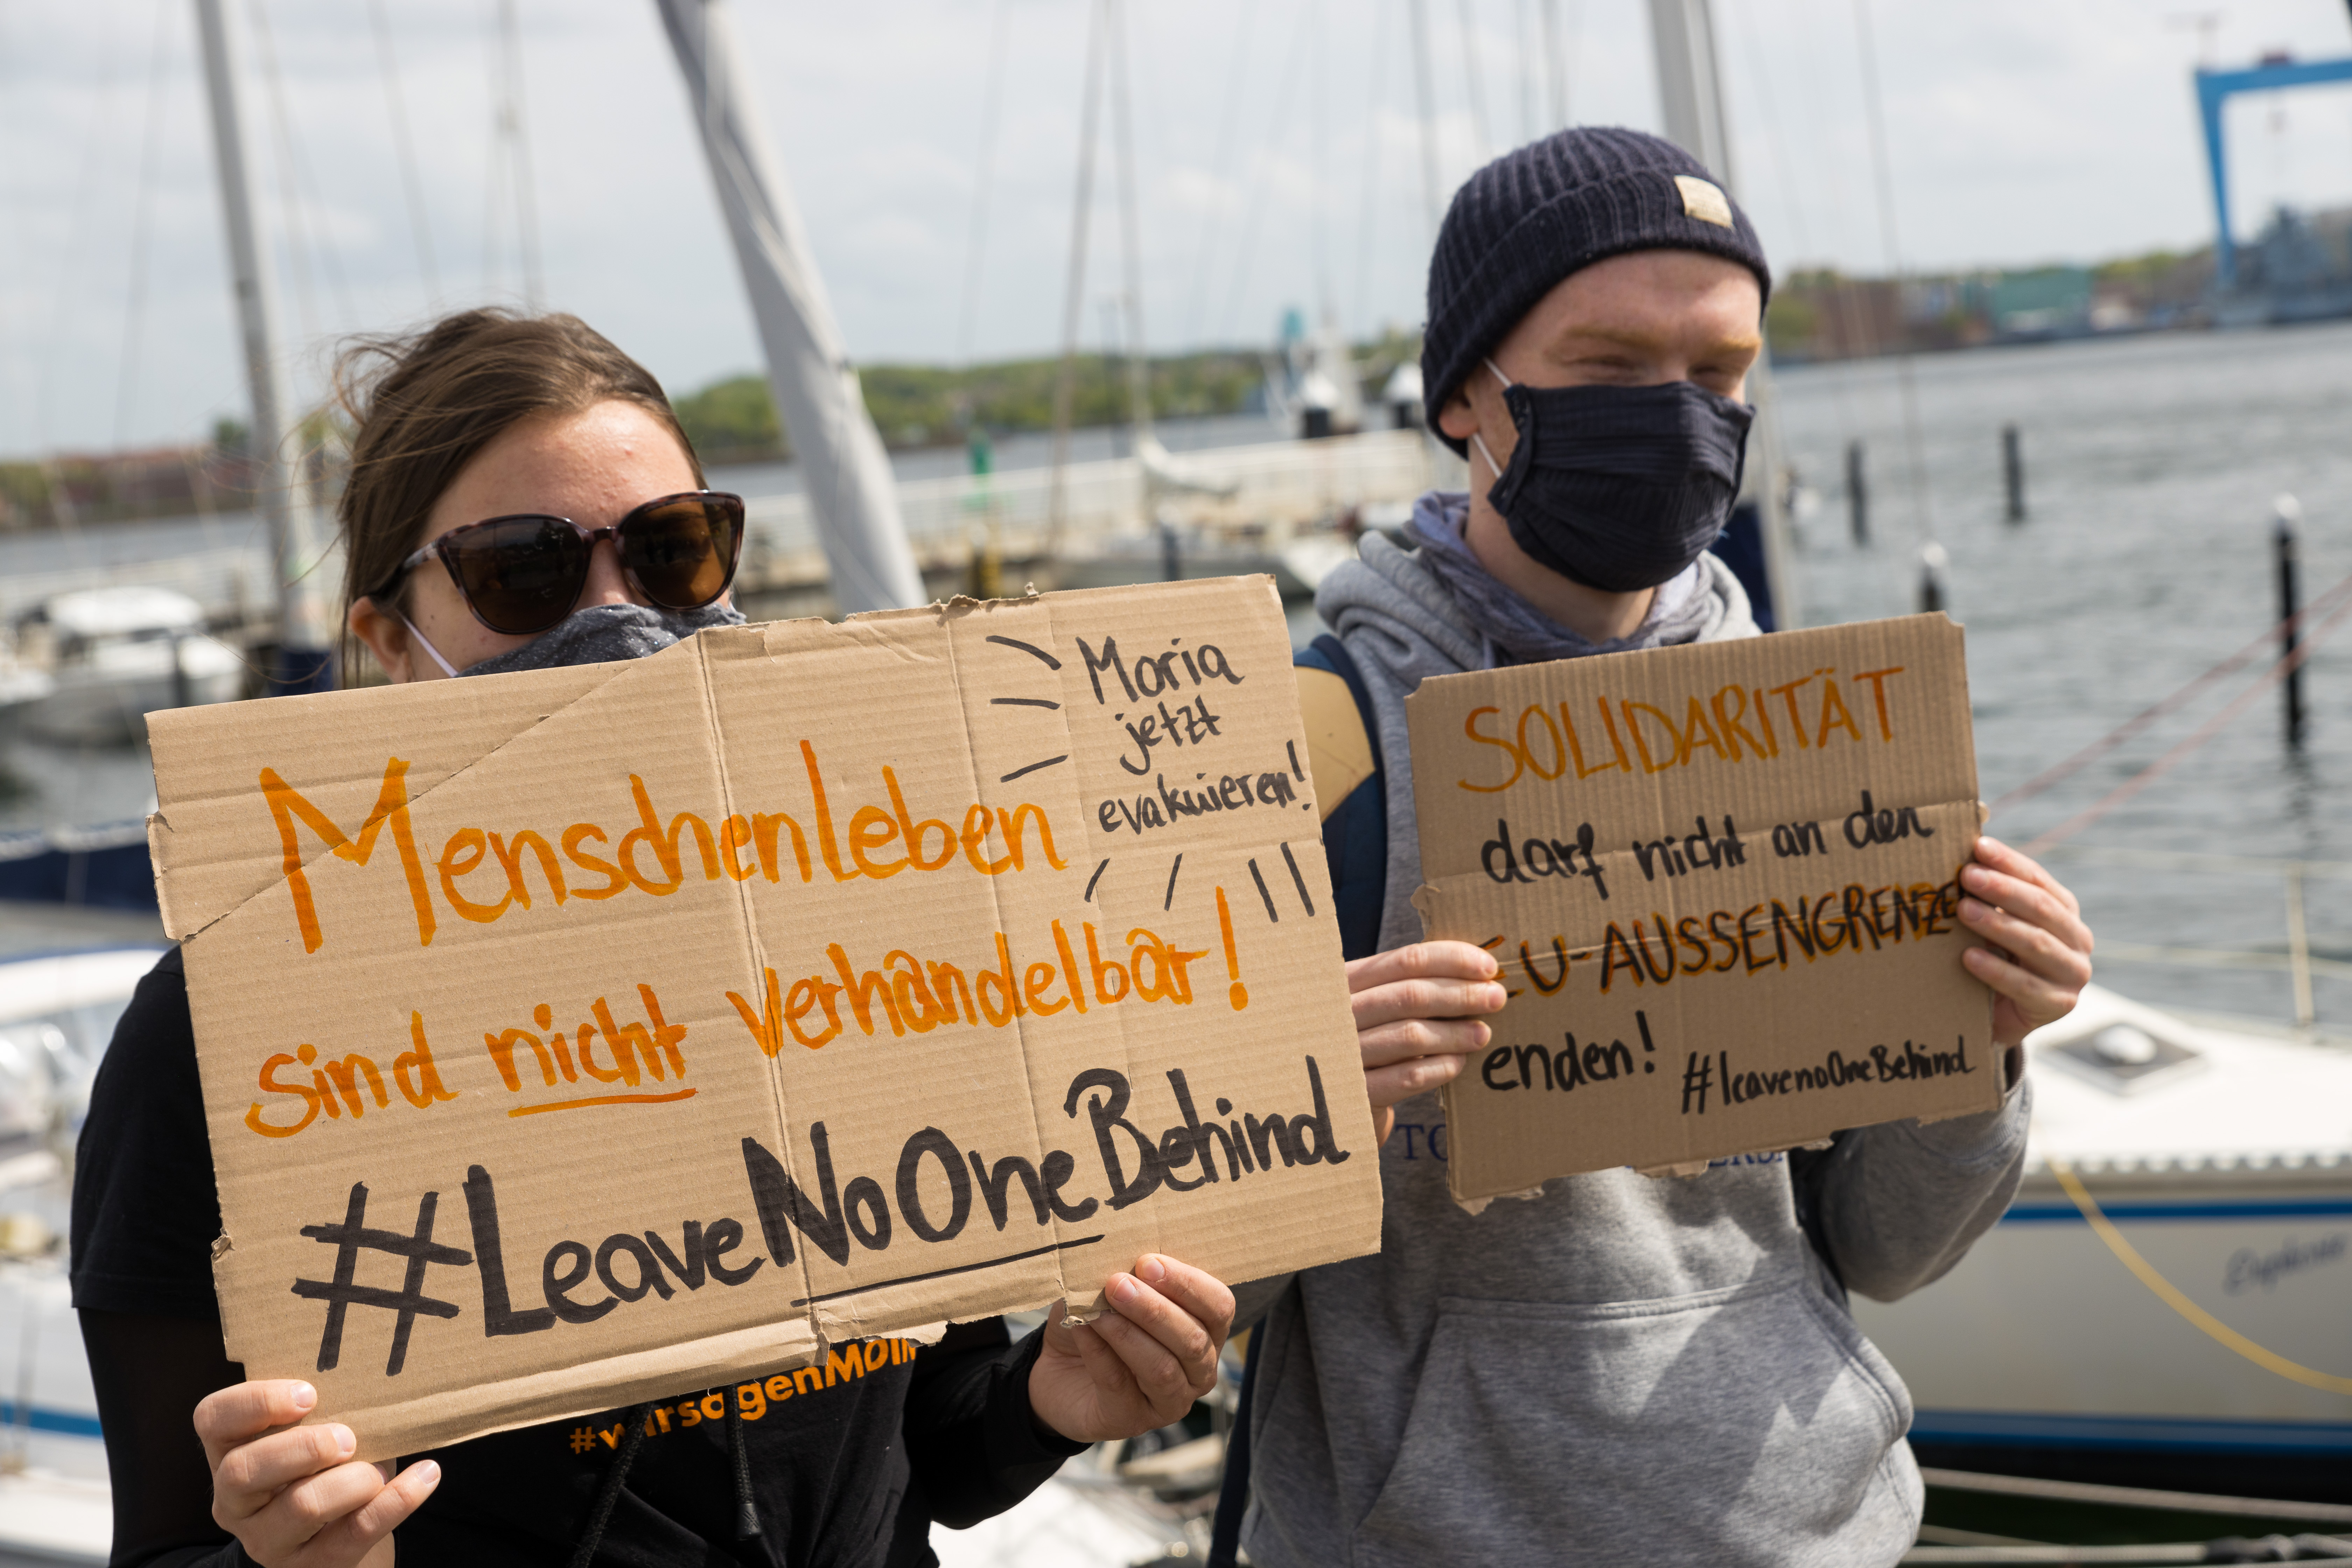 Moria
jetzt
evakuieren!
Menschenleben
sind nicht verhandelbar!
#LeaveNoOneBehind
SOLIDARITÄT
darf nicht an den
EU-AUSSENGRENZE
enden!
#leavenoOneBehind